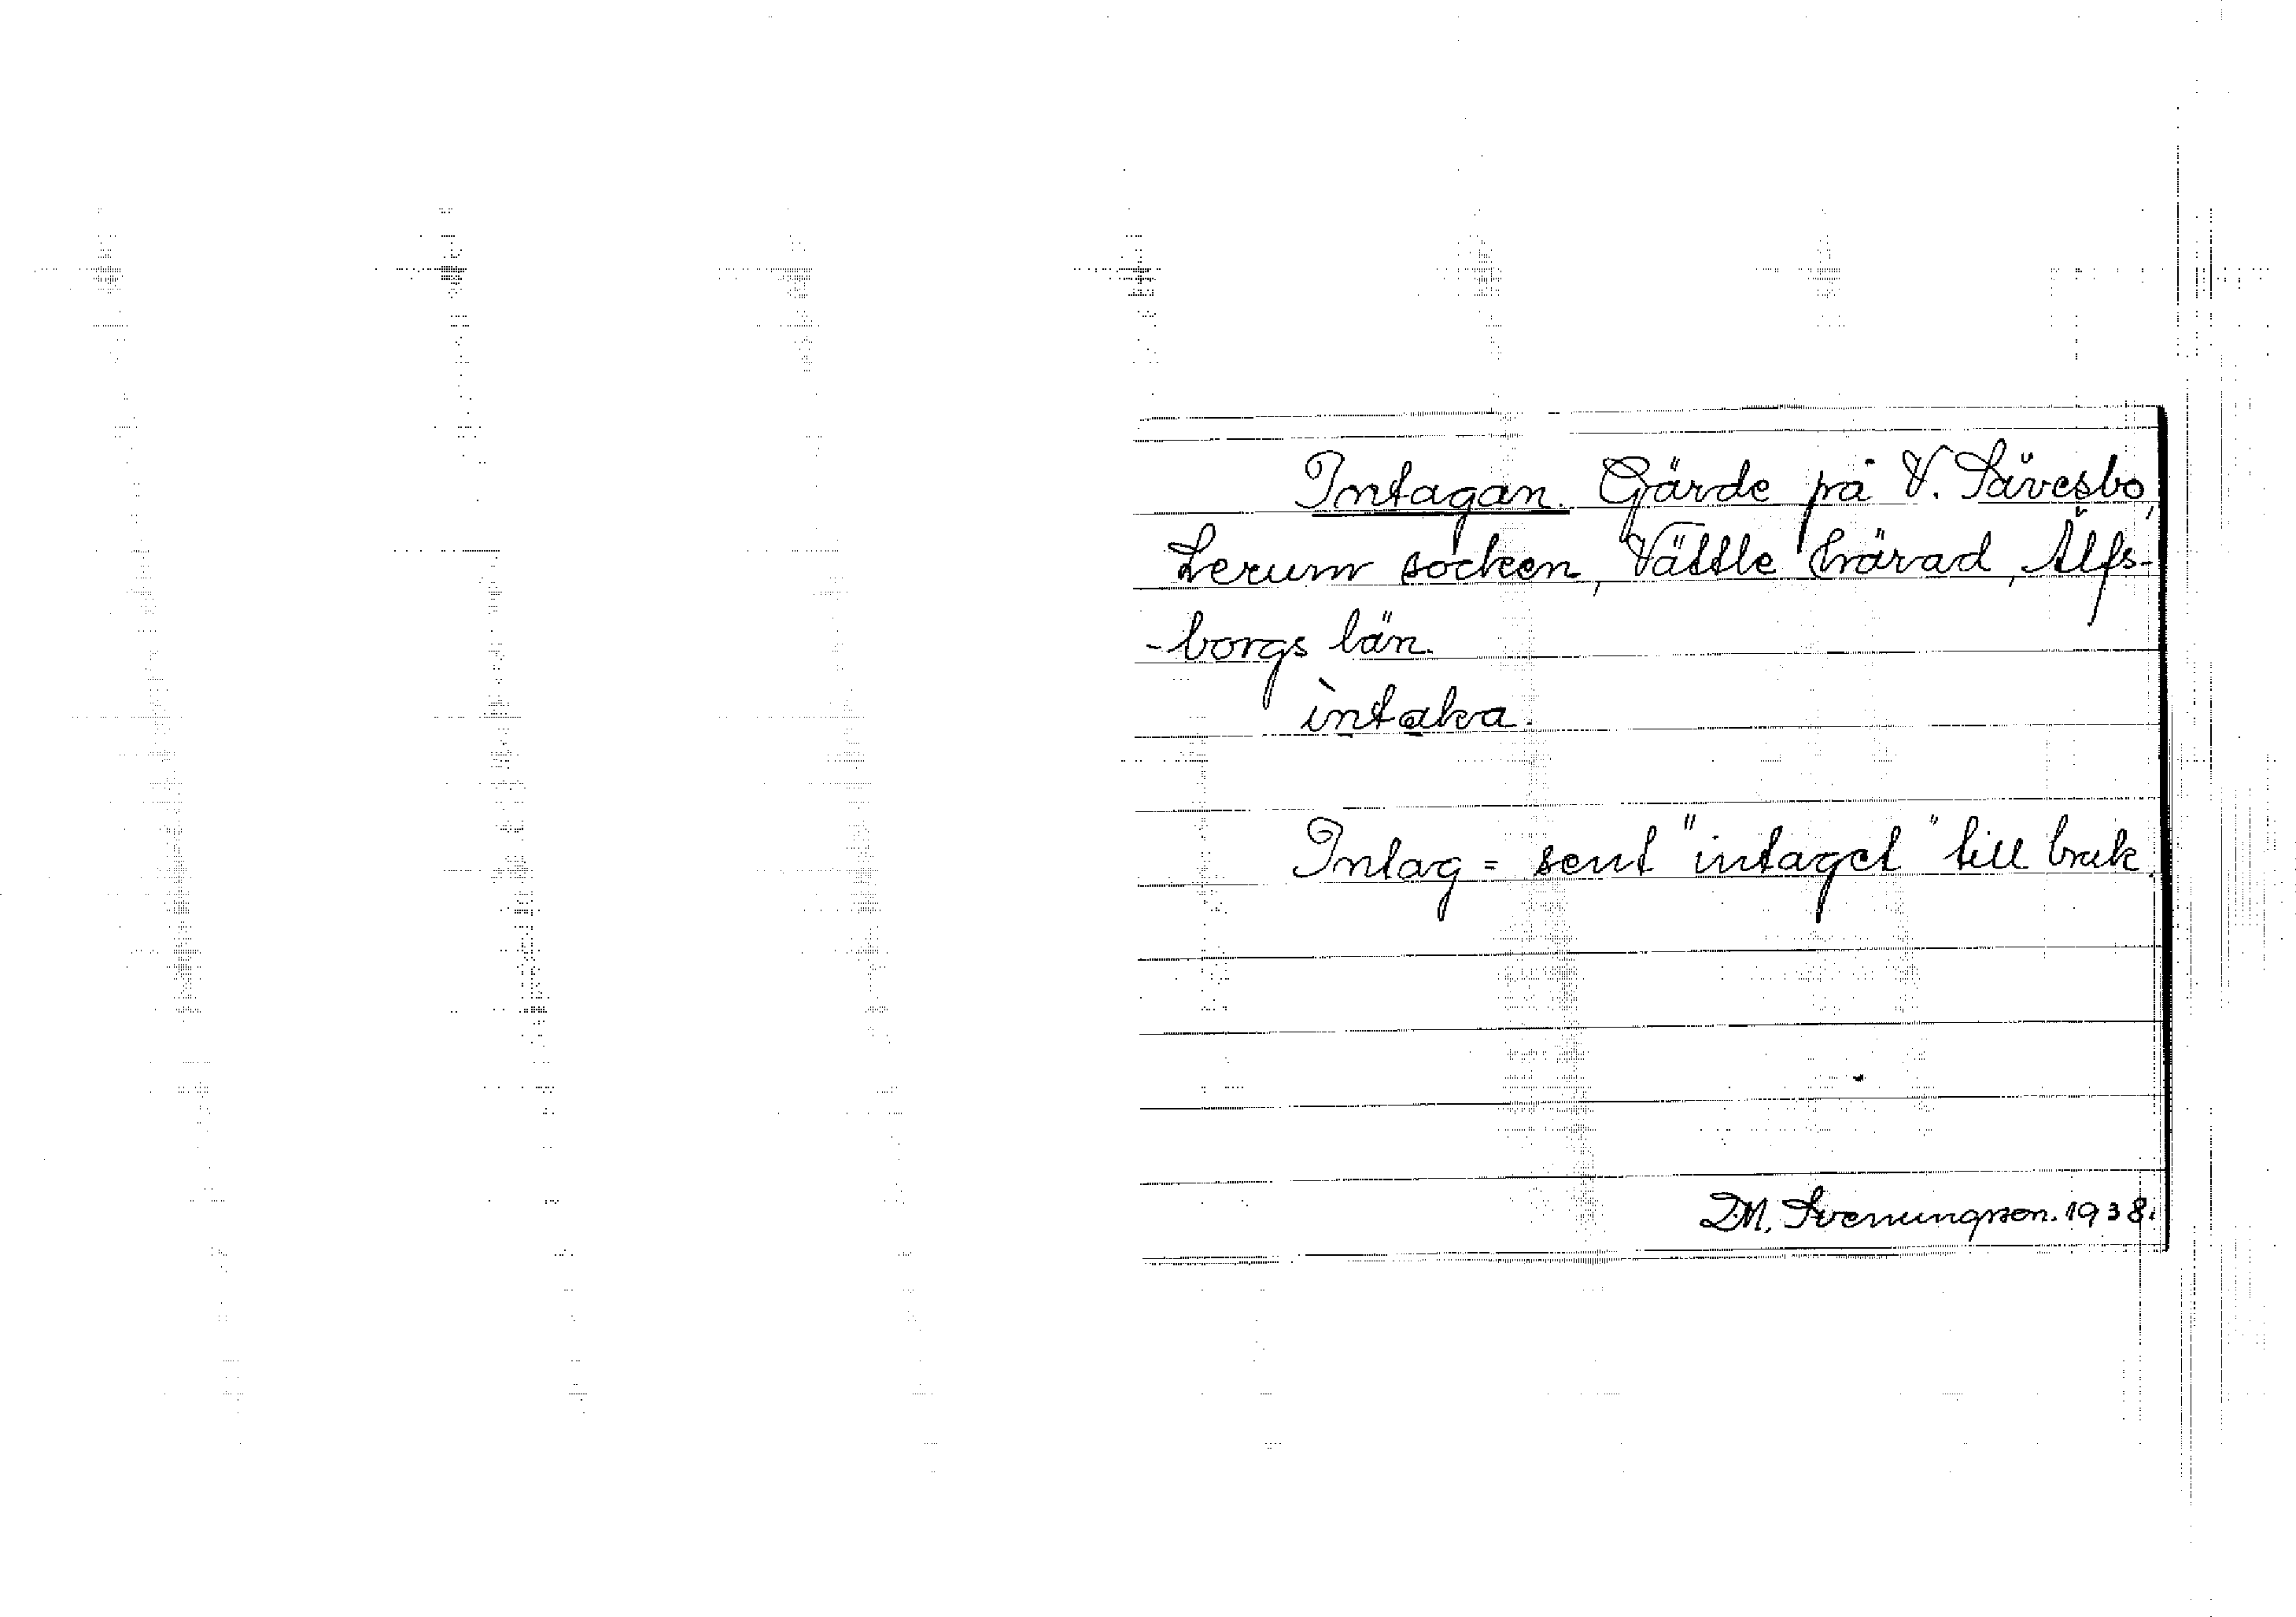 Intagan. Gärde på V. Sävesbo,
Lerum socken, Vättle härad, Älfs-
-borgs län.
ìntaka.
Intag = sent "intaget" till bruk.
D.M. Svenungsson. 1938.